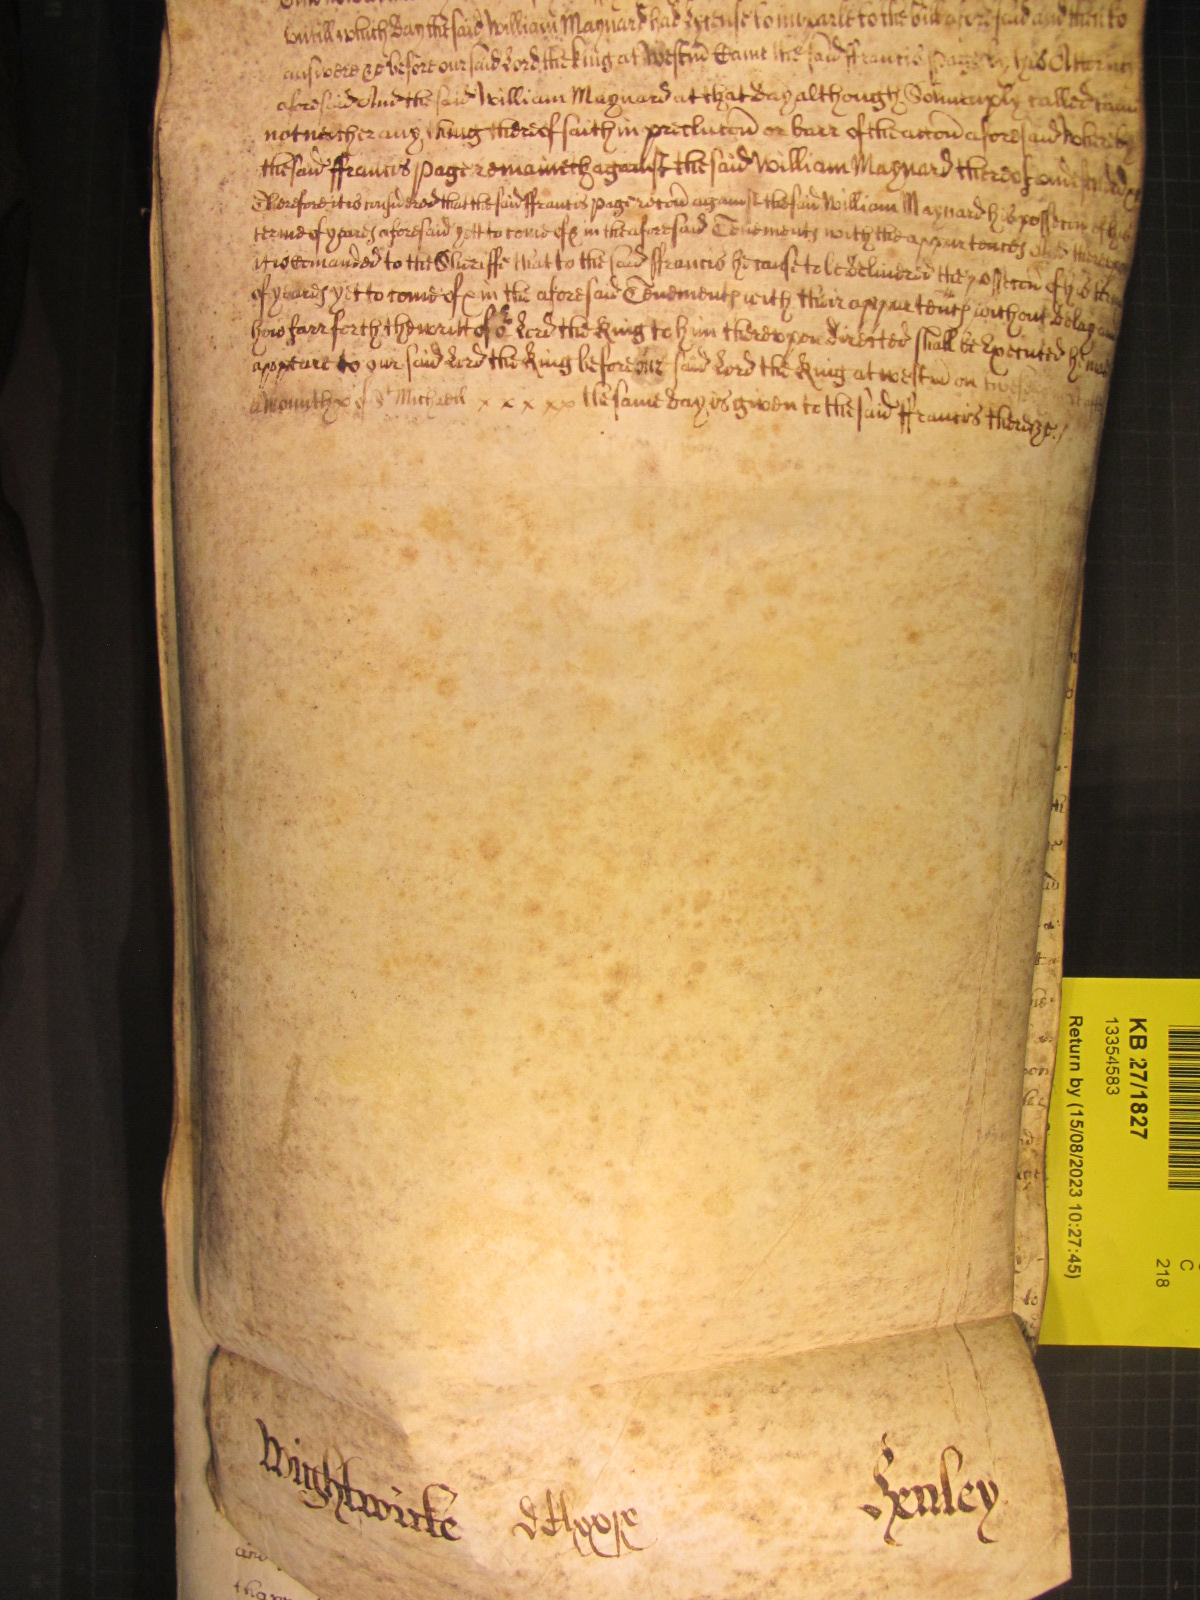 untill which day the said William Maynard had lycense to imparle to the bill aforesaid and then to
answere &c before our said Lord the King at Westm̃ Came the said ffrancis Page by his Attorney
aforesaid And the said William Maynard at that day although Solempnly called came
not neither any thing thereof saith in preclucon̄ or barr of the accon̄ aforesaid whereby
the said ffrancis Page remaineth against the said William Maynard thereof undefended &c
Therefore it is considered that the said ffrancis Page recon̄ against the said William Maynard his possecon̄ of his
terme of yeares aforesaid yett to come of & in the aforesaid Tenements with the appurtences And thereupon
it is Comanded to the Sheriffe that to the said ffrancis he cause to be delivered the possecon̄ of his terme
of yeares yet to come of & in the aforesaid Tenements with their appurtents without delay and
how farr forth the writt of or Lord the King to him thereupon directed shall be Executed he make
appeare to our said Lord the King before our said Lord the King at westm̃ on
a month of St Michaell x x x x x the same day is given to the said ffrancis there &c./
Wightwicke
Henley
KB 27/1827
13354583
Return by (15/08/2023 10:27:45)
C
218